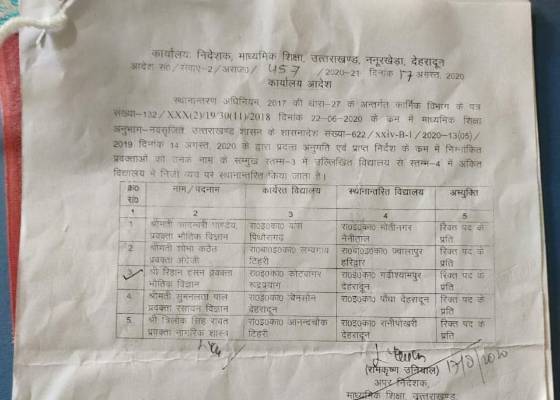 कार्यालय: निदेशक, माध्यमिक शिक्षा, उत्तराखण्ड, ननूरखेड़ा, देहरादून
आदेश सं0/सेवाएं-2/अराज0/ 457 /2020-21 दिनांक 17 अगस्त, 2020
कार्यालय आदेश
स्थानान्तरण अधिनियम, 2017 की धारा-27 के अन्तर्गत कार्मिक विभाग के पत्र
संख्या-132/XXX(2)/19/30(11)/2018 दिनांक 22-06-2020 के क्रम में माध्यमिक शिक्षा
अनुभाग-नवसृजित उत्तराखण्ड शासन के शासनादेश संख्या-622/xxiv-B-1/2020-13(05)/
2019 दिनांक 14 अगस्त, 2020 के द्वारा प्रदत्त अनुमति एवं प्राप्त निर्देश के क्रम में निम्नांकित
प्रवक्ताओं को उनके नाम के सम्मुख स्तम्भ-3 में उल्लिखित विद्यालय से स्तम्भ-4 में अंकित
विद्यालय में निजी व्यय पर स्थानान्तरित किया जाता है।
क्र0 सं0 नाम/पदनाम कार्यरत विद्यालय स्थानान्तरित विद्यालय अभ्युक्ति
1 2 3 4 5
1 श्रीमती पाण्डेय, रा0इ0का0 रा0इ0का0 मोतीनगर रिक्त पद के
प्रवक्ता भौतिक विज्ञान पिथौरागढ़ नैनीताल प्रति
2 श्रीमती शोभा कठैत रा0बा0इ0का0 रा0बा0इ0का0 ज्वालापुर रिक्त पद के
प्रवक्ता अंग्रेजी टिहरी हरिद्वार प्रति
3 श्री रिहान हसन प्रवक्ता रा0इ0का0 कोटबांगर रा0इ0का0 गढ़ीश्यामपुर रिक्त पद के
भौतिक विज्ञान रूद्रप्रयाग देहरादून प्रति
4 श्रीमती सुमनलता पाल रा0इ0का0 रा0इ0का0 पौंधा देहरादून रिक्त पद के
प्रवक्ता रसायन विज्ञान देहरादून प्रति
5. श्री त्रिलोक सिंह रावत रा0इ0का0 आनन्दचौक रा0इ0का0 रानीपोखरी रिक्त पद के
प्रवक्ता नागरिक शास्त्र टिहरी देहरादून प्रति
(रामकृष्ण उनियाल) 17/8/2020
अपर निदेशक,
माध्यमिक शिक्षा, उत्तराखण्ड